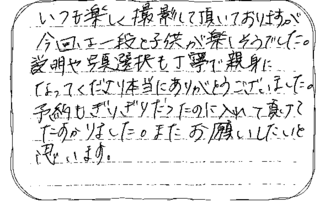 いつも楽しく撮影して頂いておりますが
今回は一段と子供が楽しそうでした。
説明や写真選択も丁寧で親身に
なってくださり本当にありがとうございました。
予約もぎりぎりだったのに入れて頂けて
たすかりました。またお願いしたいと
思います。